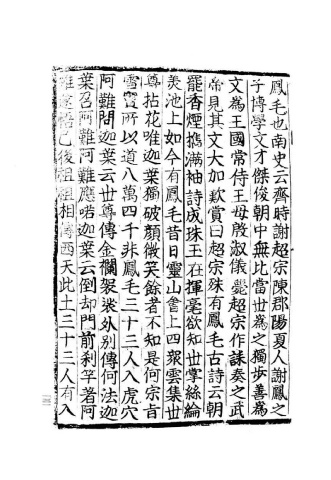 鳳毛也南史云齊時謝超宗陳郡陽夏人謝鳳之
子博學文才傑俊朝中無比當世為之獨步善為
文為王國常侍王母殷淑儀薨超宗作誄奏之武
帝見其文大加歎賞曰超宗殊有鳳毛古詩云朝
罷香煙擕滿袖詩成珠玉在揮毫欲知世掌絲綸
羙池上如今有鳳毛昔日靈山㑹上四衆雲集世
尊拈花唯迦葉獨破顏微笑餘者不知是何宗㫖
雪竇所以道八萬四千非鳳毛三十三人入虎穴
阿難問迦葉云世尊傳金襴袈裟外別傳何法迦
葉召阿難阿難應喏迦葉云倒却門前刹竿著阿
難遂悟已後祖祖相傳西天此土三十三人有入